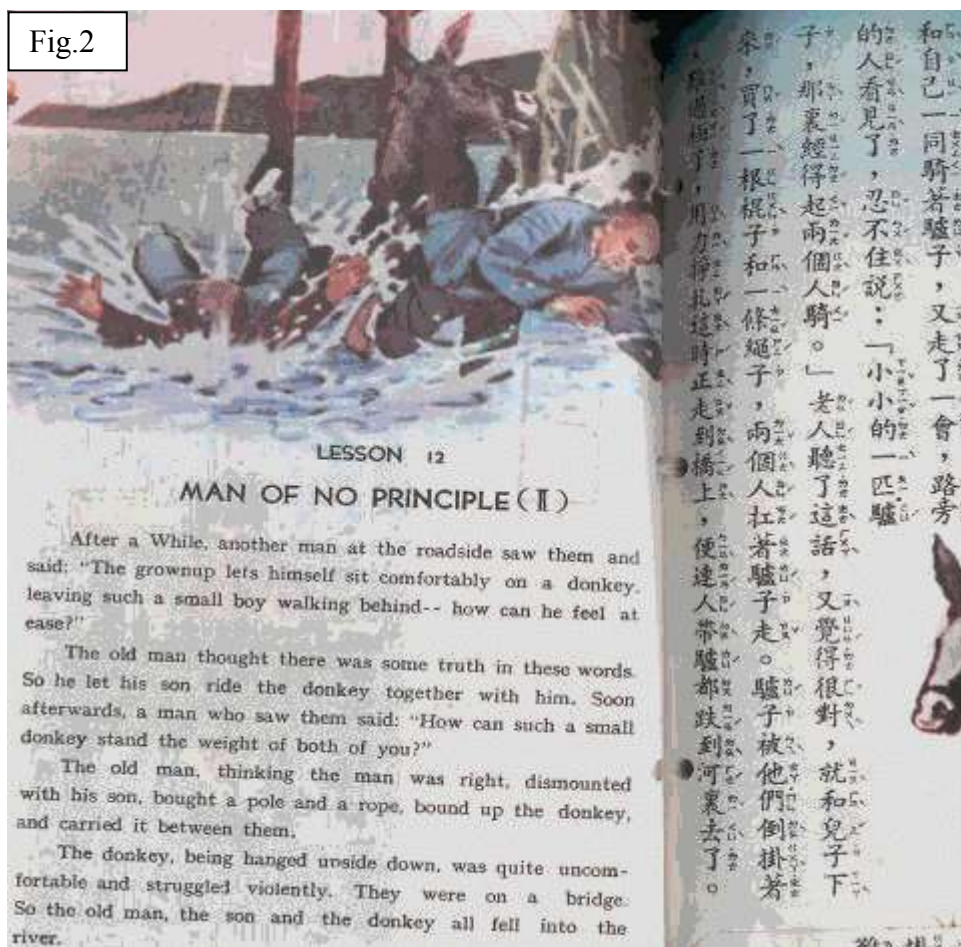 Fig.2
LESSON 12
MAN OF NO PRINCIPLE (Ⅱ)
After a While, another man at the roadside saw them and
said: "The grownup lets himself sit comfortably on a donkey,
leaving such a small boy walking behind-- how can he feel at
ease?"
The old man thought there was some truth in these words.
So he let his son ride the donkey together with him. Soon
afterwards, a man who saw them said: "How can such a small
donkey stand the weight of both of you?"
The old man, thinking the man was right, dismounted
with his son, bought a pole and a rope, bound up the donkey,
and carried it between them.
The donkey, being hanged upside down, was quite uncom-
fortable and struggled violently. They were on a bridge.
So the old man, the son and the donkey all fell into the
river.
和自己一同騎著驢子，又走了一會，路旁
的人看見了，忍不住説：「小小的一匹驢
子，那裏經得起兩個人騎。」老人聽了這話，又覺得很對，就和兒子下
來，買了一根棍子和一條繩子，兩個人扛著驢子走。驢子被他們倒掛著
，難過極了，用力掙扎這時正走到橋上，便連人帶驢都跌到河裏去了。